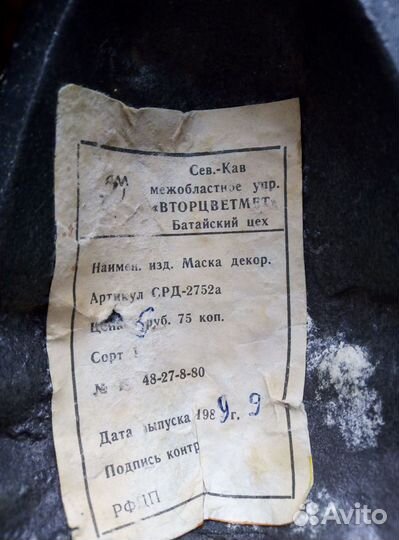 Сев.-Кав
межобластное упр.
«ВТОРЦВЕТМЕТ»
Батайский цех
Наимен. изд. Маска декор.
Артикул СРД-2752а
Цена 5 руб. 75 коп.
Сорт 1
№ 48-27-8-80
Дата выпуска 1989 г. 9
Подпись контр
Avito